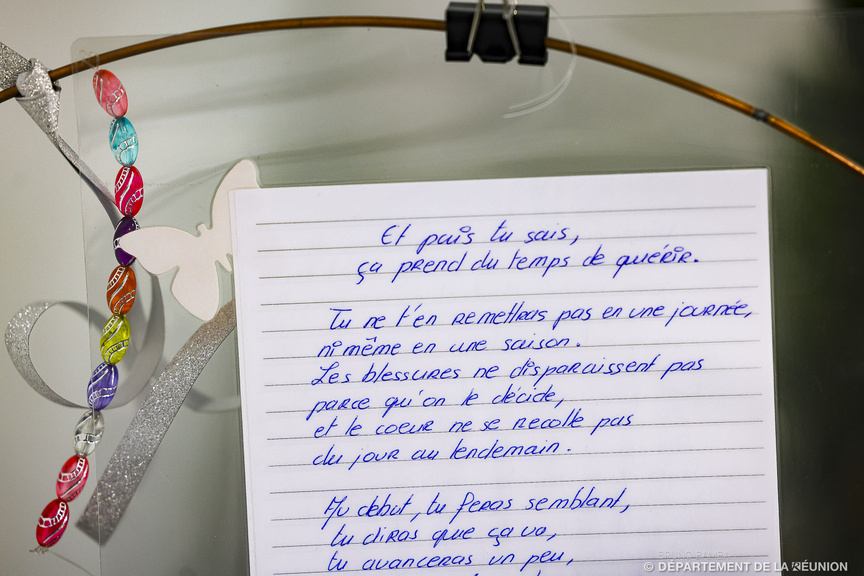 Et puis tu sais,
ça prend du temps de guérir.
Tu ne t'en remettras pas en une journée,
ni même en une saison.
Les blessures ne disparaissent pas
parce qu'on le décide,
et le coeur ne se recolle pas
du jour au lendemain.
Au début, tu feras semblant,
tu diras que ça va,
tu avanceras un peu,
© DÉPARTEMENT DE LA RÉUNION